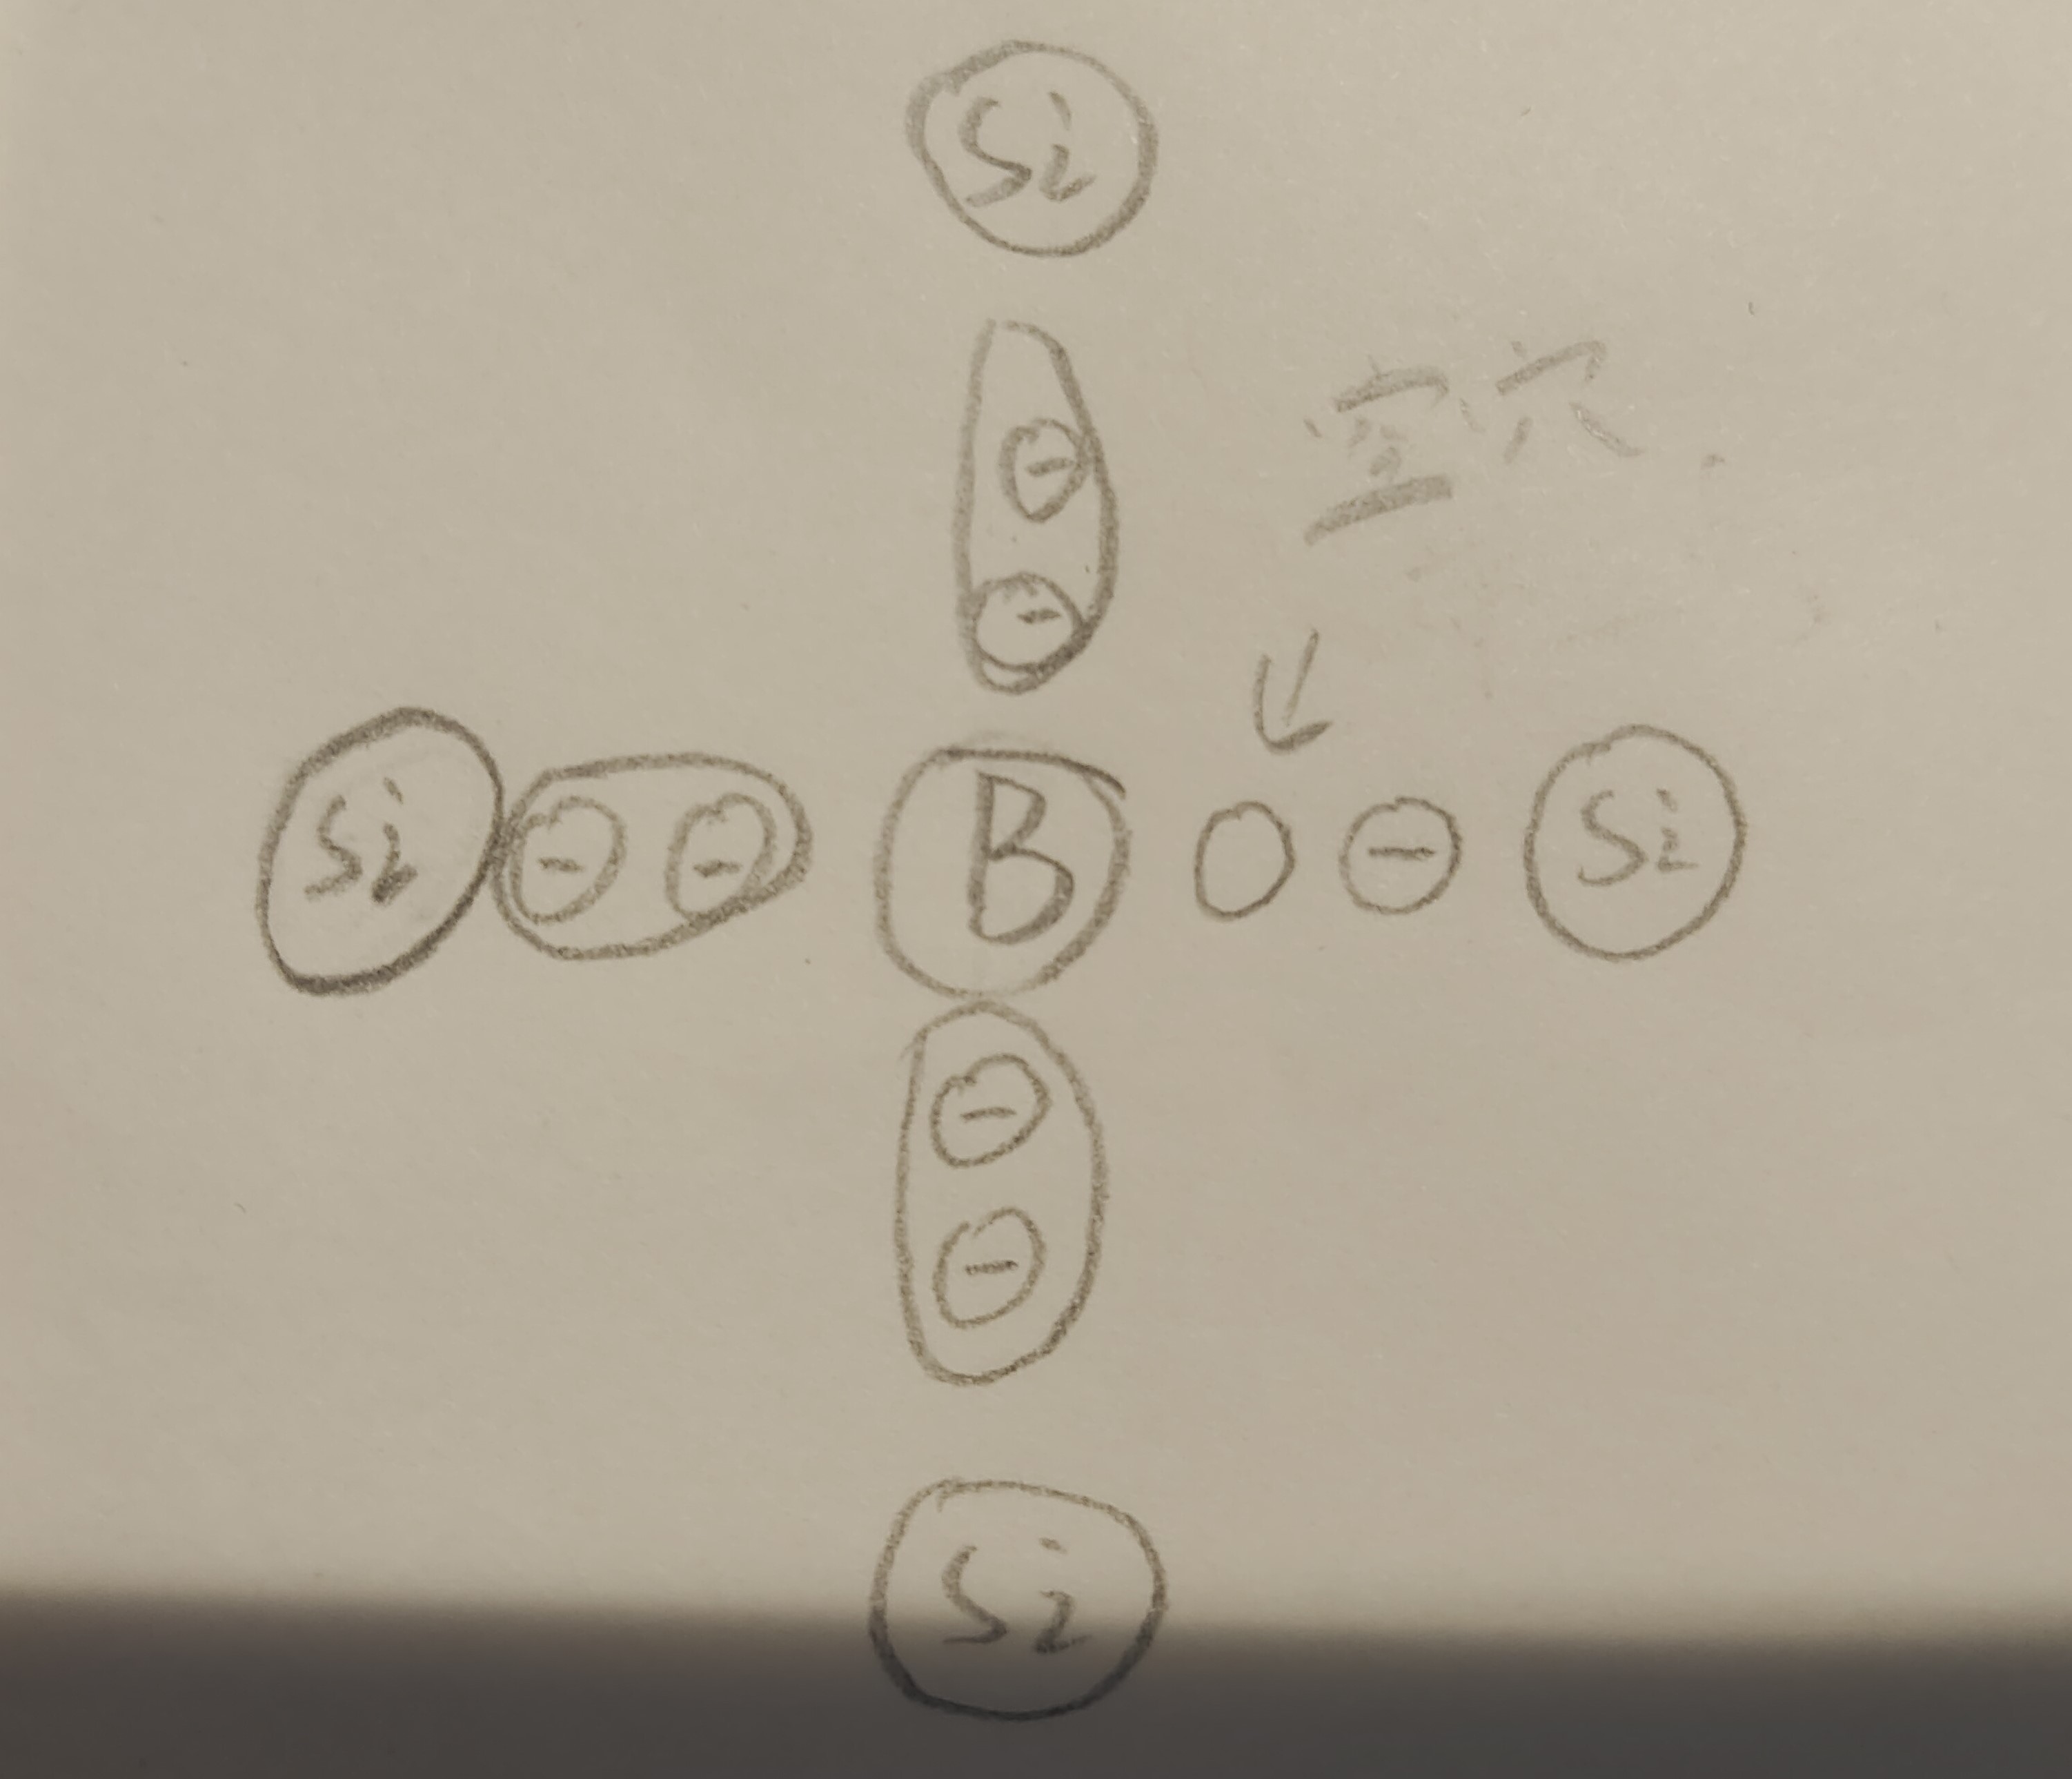 Si
空穴.
Si ⊖ ⊖ B ○ ⊖ Si
⊖
⊖
⊖
⊖
Si